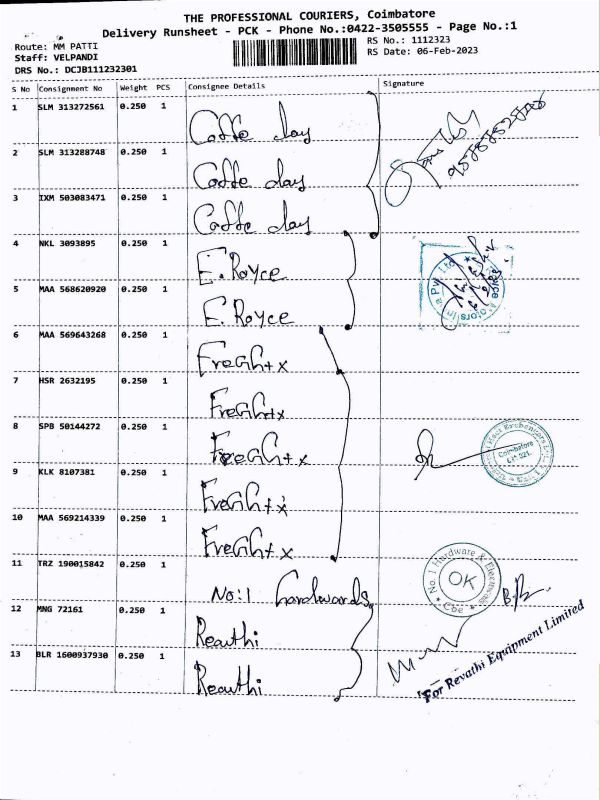 THE PROFESSIONAL COURIERS, Coimbatore
Delivery Runsheet - PCK - Phone No.:0422-3505555 - Page No.:1
Route: MM PATTI
RS No.: 1112323
Staff: VELPANDI
RS Date: 06-Feb-2023
DRS No.: DCJB111232301
S No Consignment No Weight PCS Consignee Details Signature
1 SLM 313272561 0.250 1 Coffe day
2 SLM 313288748 0.250 1 Coffe day
3 IXM 503083471 0.250 1 Coffe day
4 NKL 3093895 0.250 1 E.Royce
5 MAA 568620920 0.250 1 E.Royce
6 MAA 569643268 0.250 1 FreGhtx
7 HSR 2632195 0.250 1 FreGhtx
8 SPB 50144272 0.250 1 FreGhtx
Coimbatore
641 321.
9 KLK 8107381 0.250 1 FreGhtx
10 MAA 569214339 0.250 1 FreGhtx
11 TRZ 190015842 0.250 1 No:1 hardwards
No. 1 Hardware & Electricals
OK
Cbe
12 MNG 72161 0.250 1 Reauthi
13 BLR 1600937930 0.250 1 Reauthi
For Revathi Equipment Limited